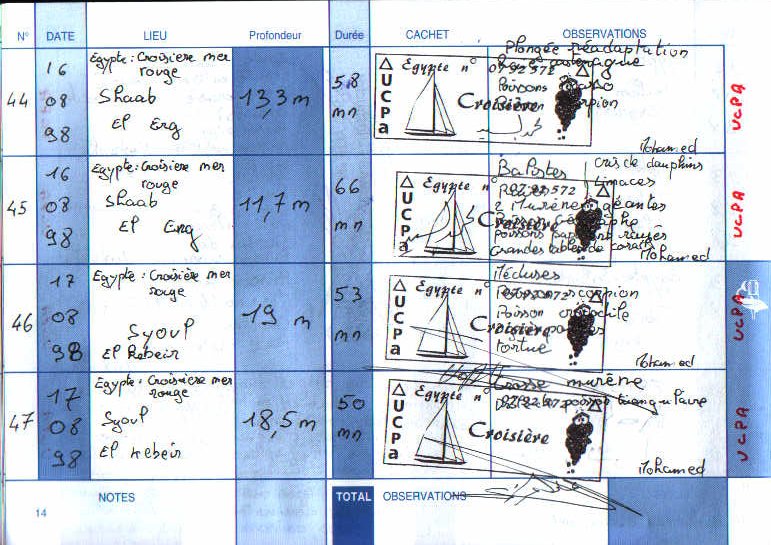 N° DATE LIEU Profondeur Durée CACHET OBSERVATIONS
44
16
08
98
Egypte: Croisiere mer
rouge
Shaab
El Erg
13,3 m
58
mn
UCPa
Egypte n° 07 92 572
Croisière
Plongée réadaptation
Poissons
Mohamed
UCPA
45
16
08
98
Egypte: Croisiere mer
rouge
Shaab
El Erg
11,7 m
66
mn
UCPa
Egypte n° 07 92 572
Croisière
Balistes
Cris de dauphins
Limaces
2 Murènes géantes
Poisson
Grandes tables de corail
Mohamed
UCPA
46
17
08
98
Egypte: Croisière mer
rouge
Syoul
El Kebeir
19 m
53
mn
UCPa
Egypte n° 07 92 572
Croisière
Méduses
Poisson scorpion
Poisson crocodile
tortue
Mohamed
UCPA
47
17
08
98
Egypte: Croisiere mer
rouge
Syoul
El Kebeir
18,5 m
50
mn
UCPa
Egypte n° 07 92 572
Croisière
Grosse murène
poisson triangulaire
Mohamed
UCPA
NOTES TOTAL OBSERVATIONS
14